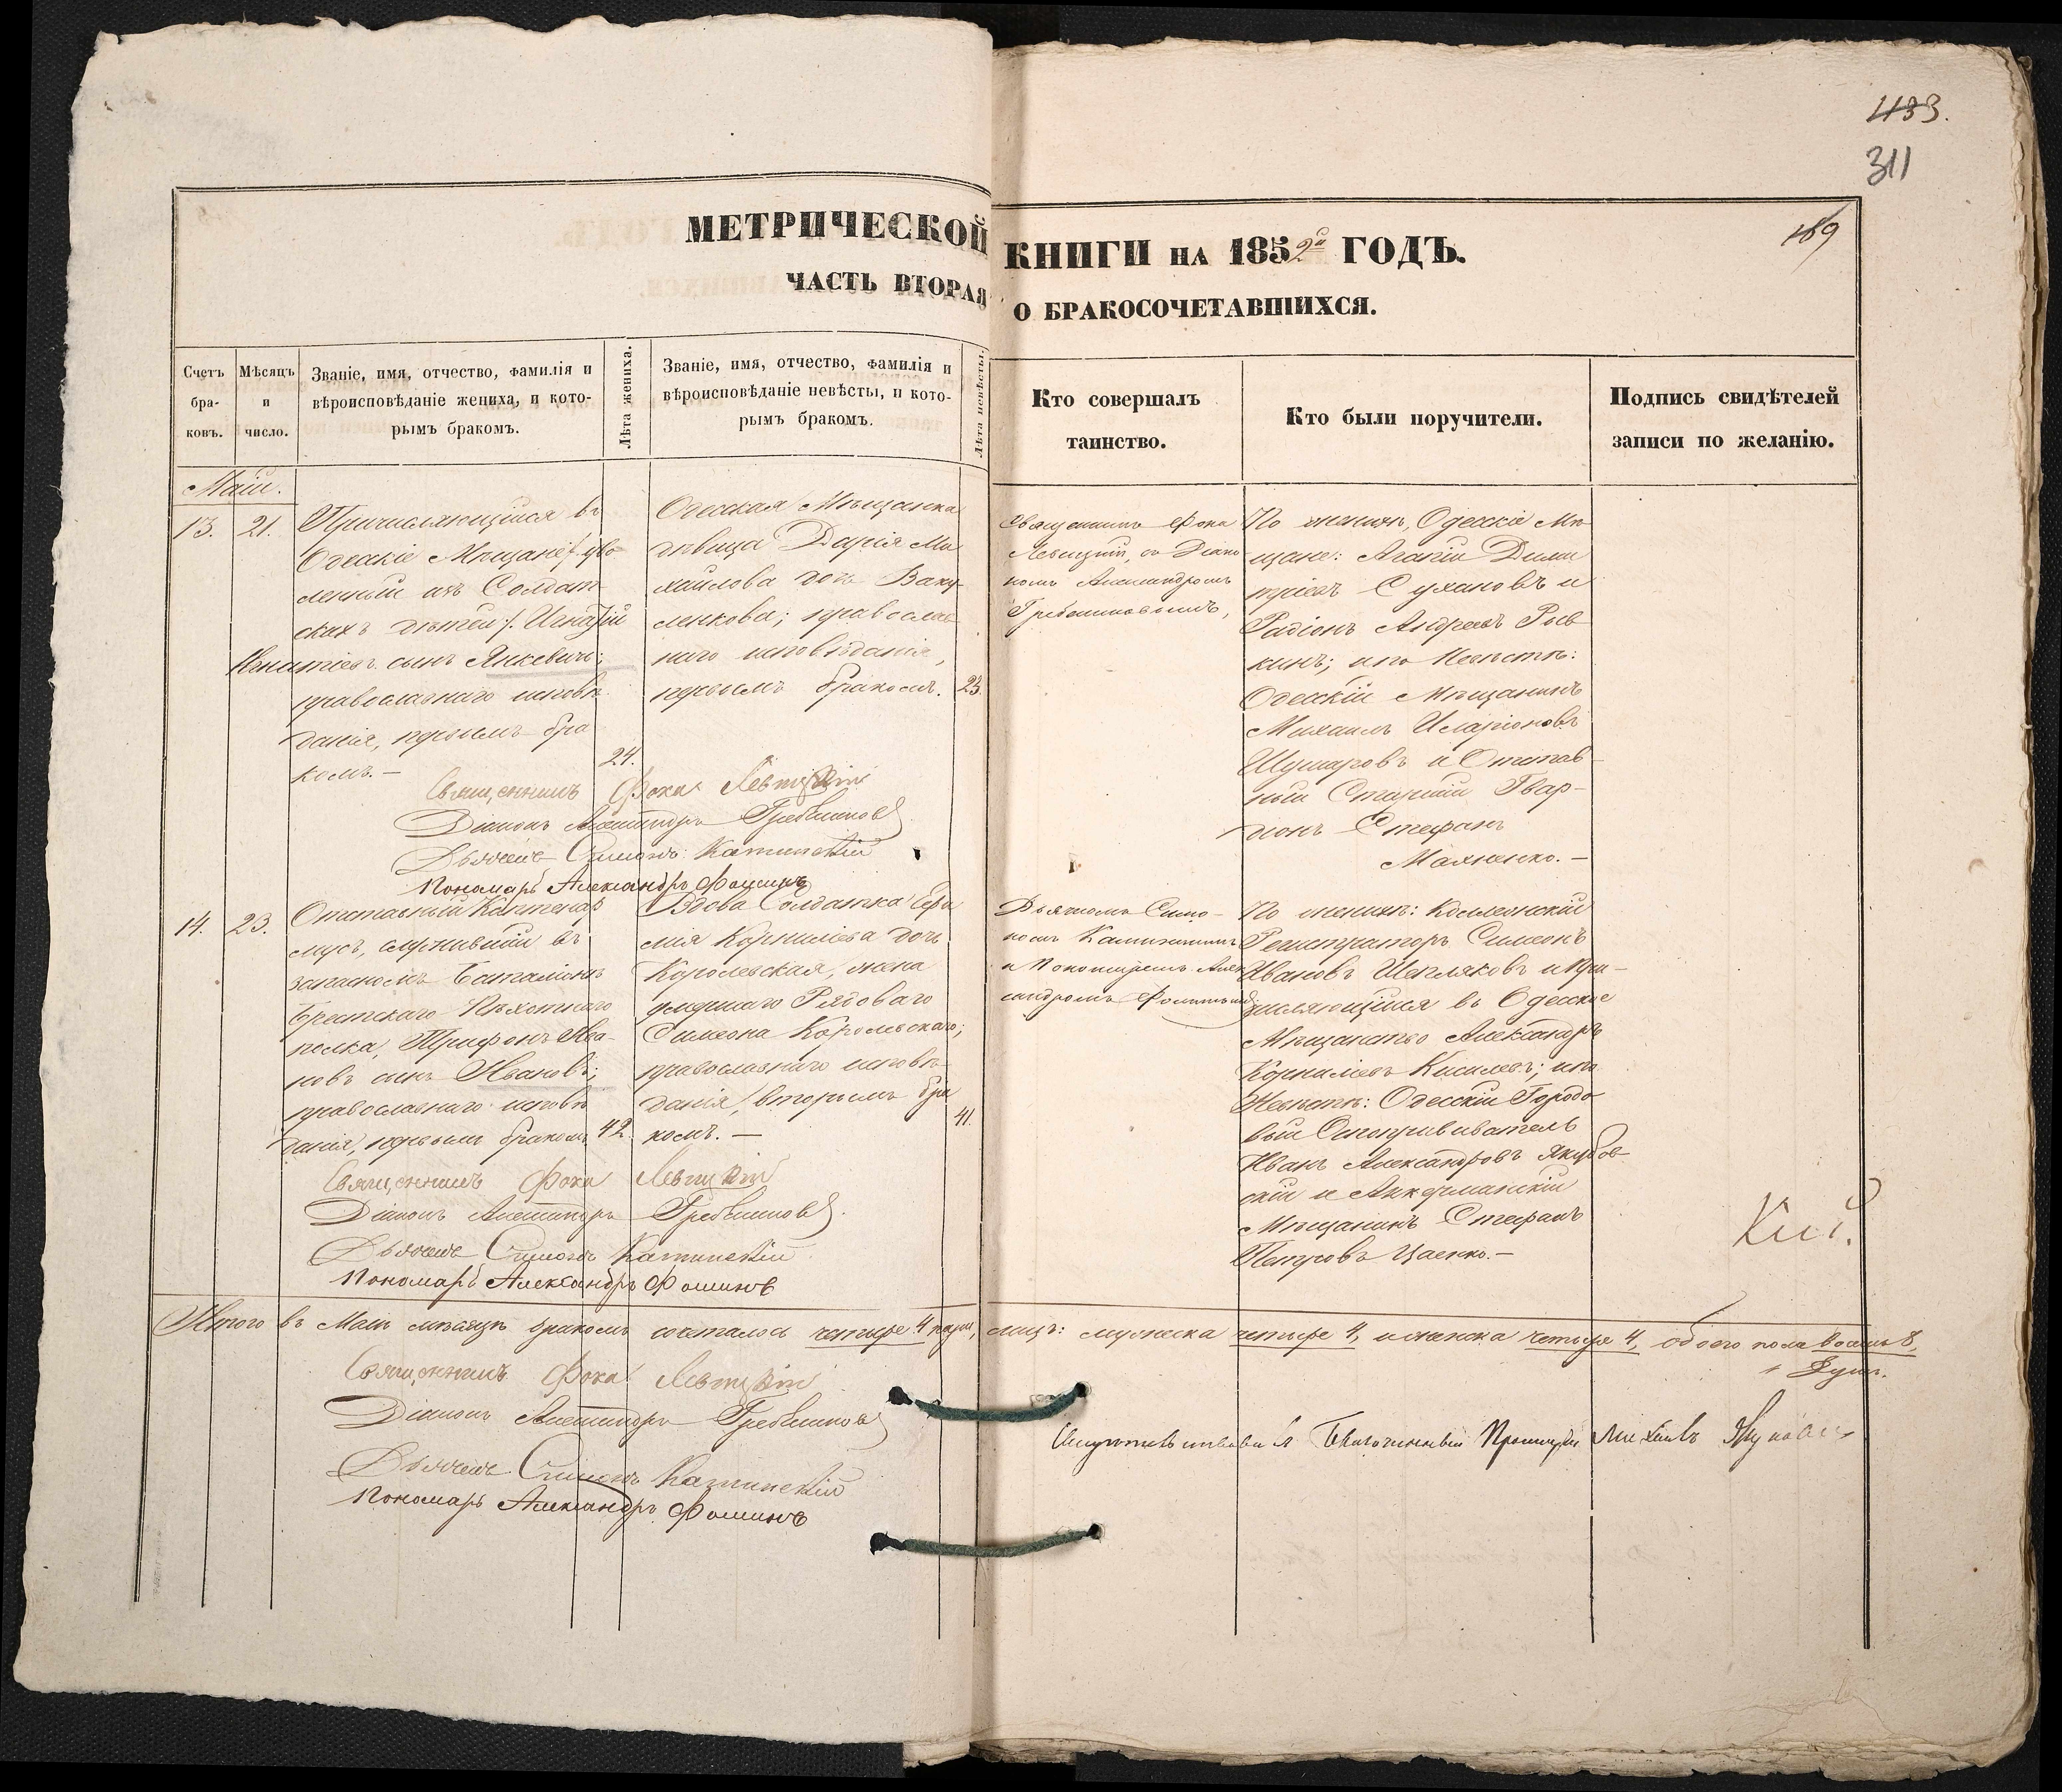 433.
311
189
МЕТРИЧЕСКОЙ КНИГИ НА 1852й ГОДЪ.
ЧАСТЬ ВТОРАЯ О БРАКОСОЧЕТАВШИХСЯ.
Счетъ бра-ковъ.
Мѣсяцъ и число.
Званіе, имя, отчество, фамилія и
вѣроисповѣданіе жениха, и кото-
рымъ бракомъ.
Лѣта жениха.
Званіе, имя, отчество, фамилія и
вѣроисповѣданіе невѣсты, и кото-
рымъ бракомъ.
Лѣта невѣсты.
Кто совершалъ
таинство.
Кто были поручители.
Подпись свидѣтелей
записи по желанію.
Маій.
13. 21.
Причисляющійся въ
Одескіе Мѣщане /: уво
ленный изъ Солдат-
скихъ дѣтей :/ Игнатій
Игнатіевъ сынъ Янкевичъ;
православнаго исповѣ
данія, первымъ бра
комъ. —
24.
Одесская Мѣщанка
дѣвица Дарія Ми
хайлова дочь Ваку-
ленкова; православ
наго исповѣданія,
первымъ бракомъ.
23.
Священникъ Фока
Левицкій, съ Діако
номъ Александромъ
Гребенниковымъ,
По женихѣ, Одесскіе Мѣ
щане: Агапій Дими
тріевъ Сухановъ и
Радіонъ Андреевъ Рыб
кинъ; и по Невѣстѣ:
Одесскій Мѣщанинъ
Михаилъ Иларіоновъ
Шушаровъ и Отстав-
ный Старшій Гвар-
діонъ Стефанъ
Махненко. —
Священникъ Фока Левицкій
Діаконъ Александръ Гребенниковъ
Дьячекъ Симонъ Катинскій
Пономарь Александръ Фоминъ
14. 23.
Отставный Каптенар
мусъ, служившій въ
запасномъ Баталіонѣ
Брестскаго Пѣхотнаго
полка, Трифонъ Ива-
новъ сынъ Ивановъ;
православнаго исповѣ
данія, первымъ бракомъ.
42.
Вдова Солдатка Ефи
мія Корниліева дочь
Королевская, жена
умершаго Рядоваго
Симеона Королевскаго;
православнаго исповѣ
данія, вторымъ бра
комъ. —
41.
Дьячкомъ Симо-
номъ Катинскимъ
и Пономаремъ Алек
сандромъ Фоминымъ;
По женихѣ: Коллежскій
Регистраторъ Симеонъ
Ивановъ Шепляковъ и При-
числяющійся въ Одесское
Мѣщанство Александръ
Корниліевъ Киселевъ; и по
Невѣстѣ: Одесскій Городо
вый Оспопрививатель
Иванъ Александровъ Якубов-
скій и Аккерманскій
Мѣщанинъ Стефанъ
Петровъ Цаенко. —
Священникъ Фока Левицкій
Діаконъ Александръ Гребенниковъ
Дьячекъ Симонъ Катинскій
Пономарь Александръ Фоминъ
Итого въ Маіѣ мѣсяцѣ бракомъ сочеталось четыре 4 пары, лицъ: мужеска четыре 4, и женска четыре 4, обоего пола восемь 8,
душъ.
Священникъ Фока Левицкій
Діаконъ Александръ Гребенниковъ
Дьячекъ Симонъ Катинскій
Пономарь Александръ Фоминъ
Свидѣтельствовалъ Благочинный Протоіерей